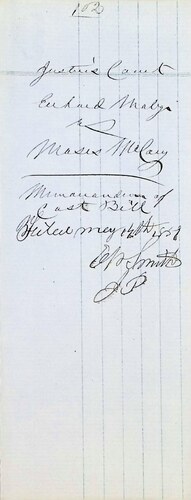 182
Justice's Court
Erhard
vs
Moses McCay
Memorandum of
Cost Bill
Filed May 14th
Smith
J P